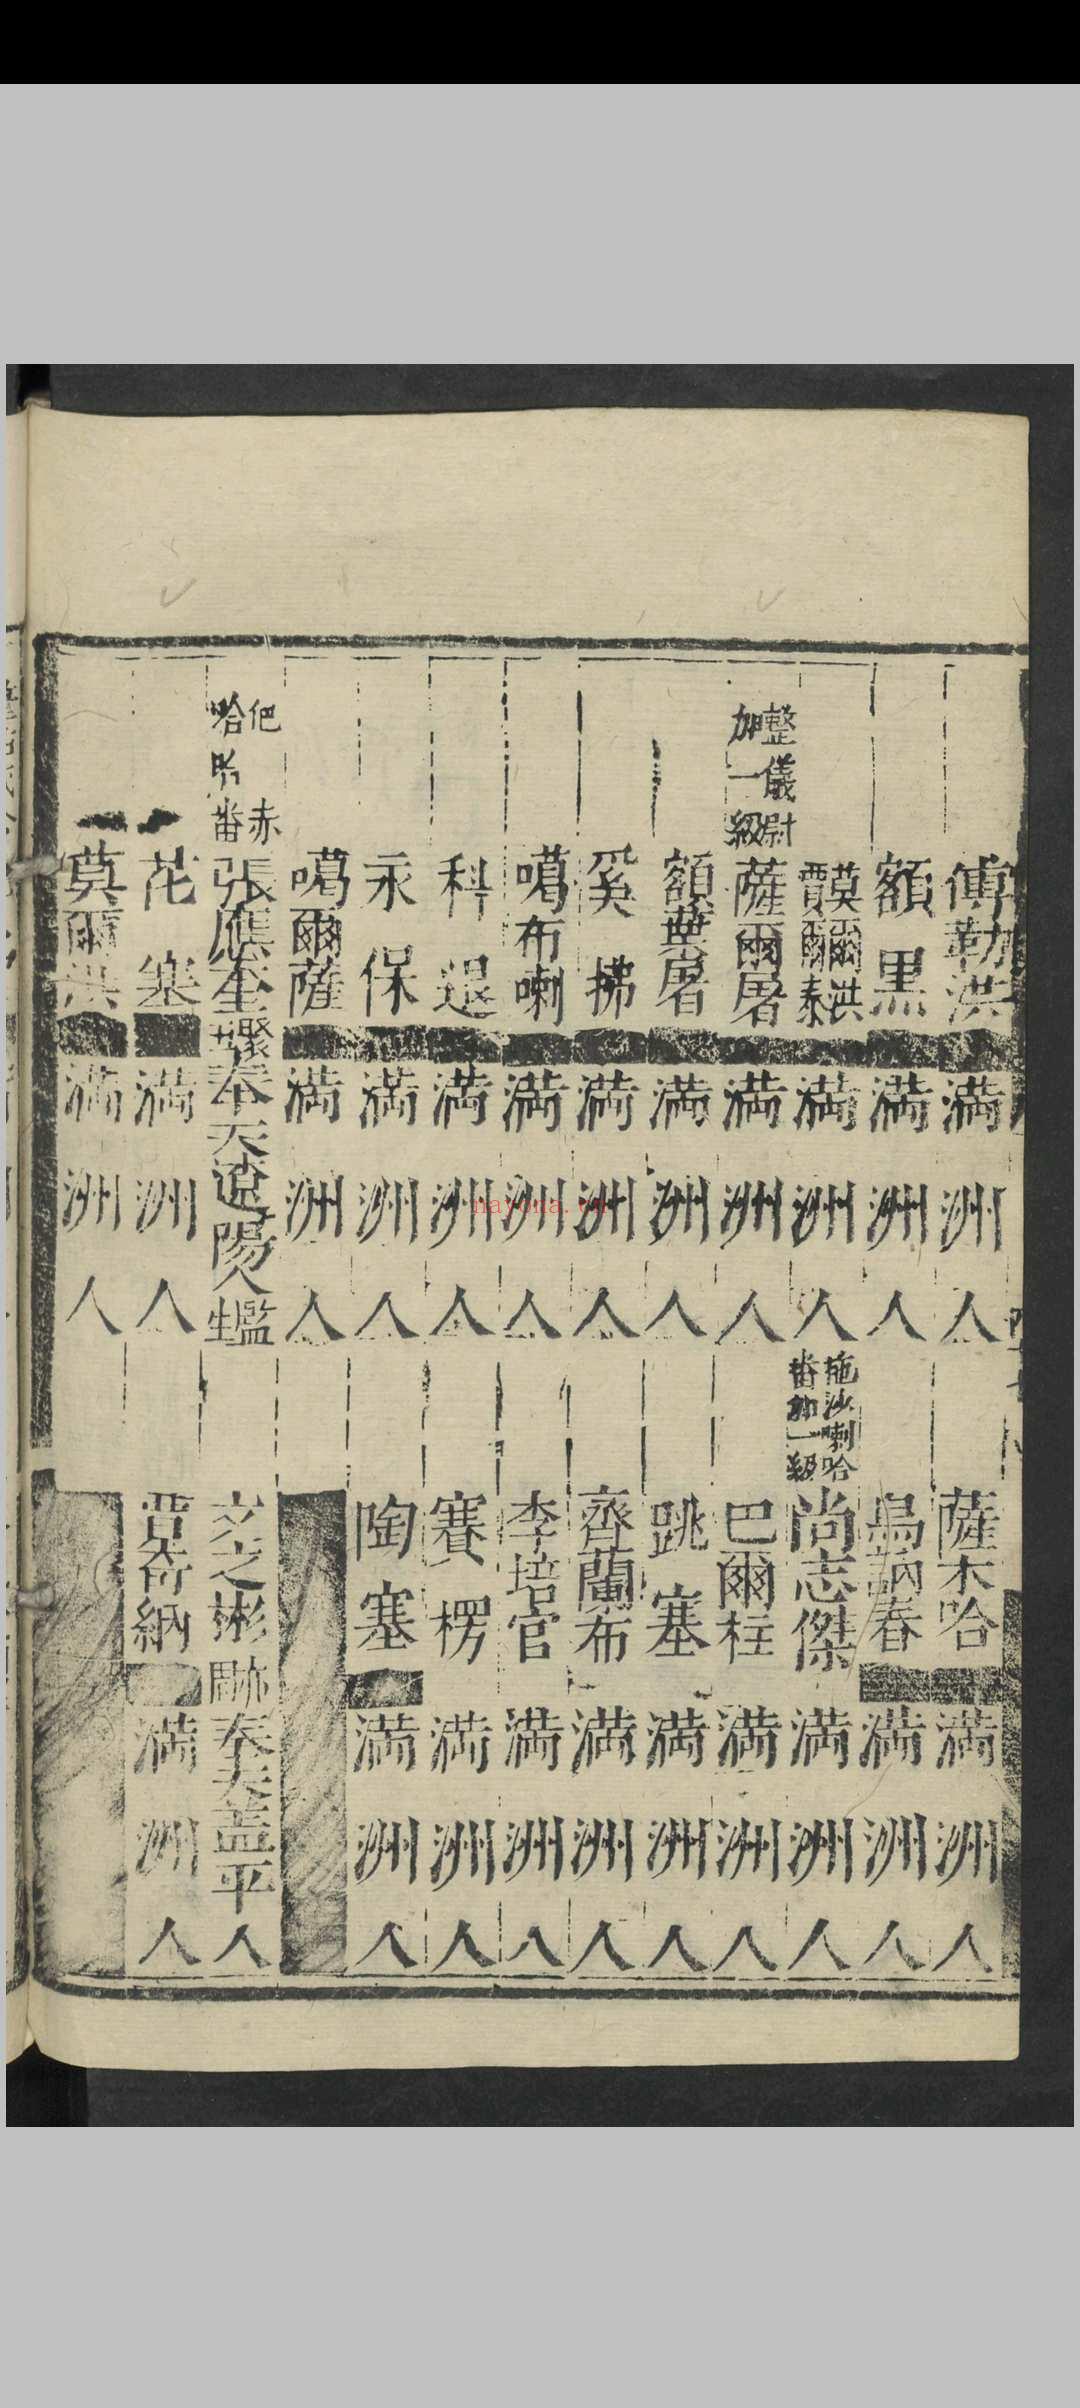 傅勒洪 滿洲人
額黑 滿洲人
莫爾洪
賈爾泰 滿洲人
整儀尉
加一級
薩爾屠 滿洲人
額葉屠 滿洲人
奚拂 滿洲人
噶布喇 滿洲人
科退 滿洲人
永保 滿洲人
噶爾薩 滿洲人
張應奎 奉天遼陽人 監生
花塞 滿洲人
莫爾洪 滿洲人
薩木哈 滿洲人
烏訥春 滿洲人
拖沙喇哈
番加一級
尚志傑 滿洲人
巴爾柱 滿洲人
跳塞 滿洲人
齊蘭布 滿洲人
李培官 滿洲人
賽楞 滿洲人
陶塞 滿洲人
文之彬 奉天蓋平人
賈奇納 滿洲人
nayona.cn